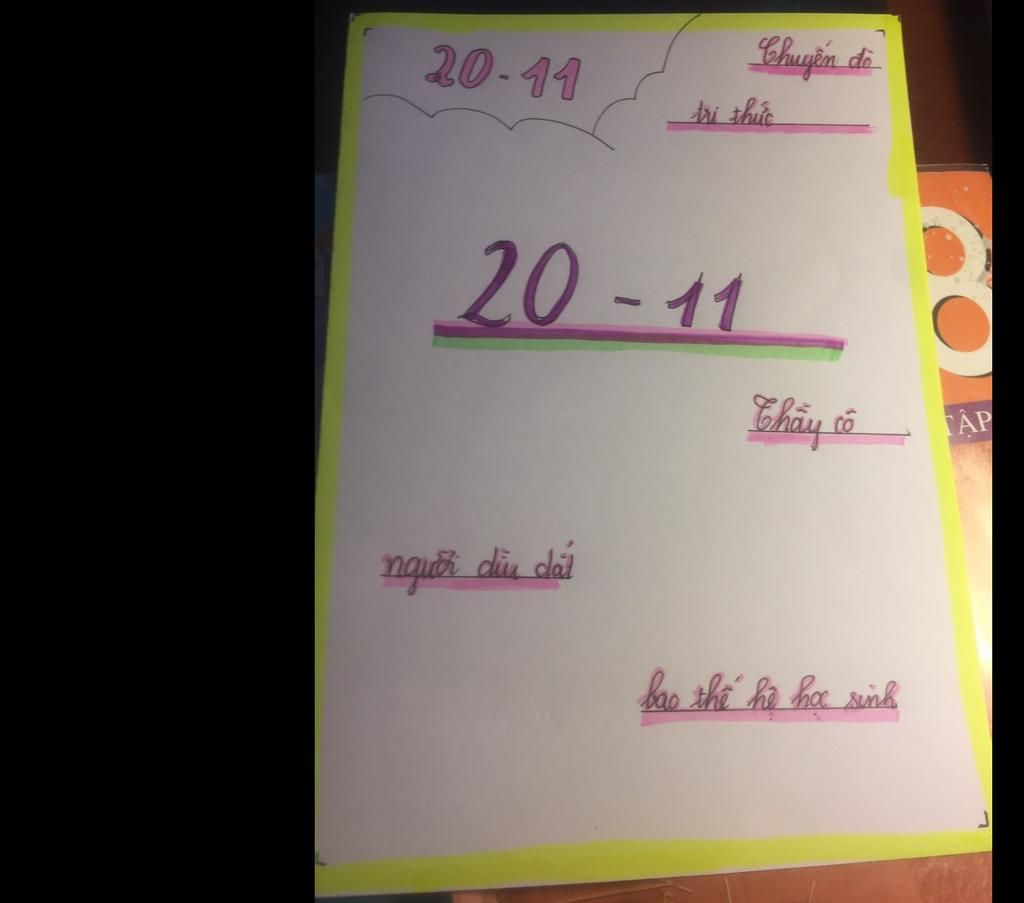 20-11
Chuyến đò
tri thức
20 - 11
Thầy cô
người dìu dắt
bao thế hệ học sinh
8
TẬP